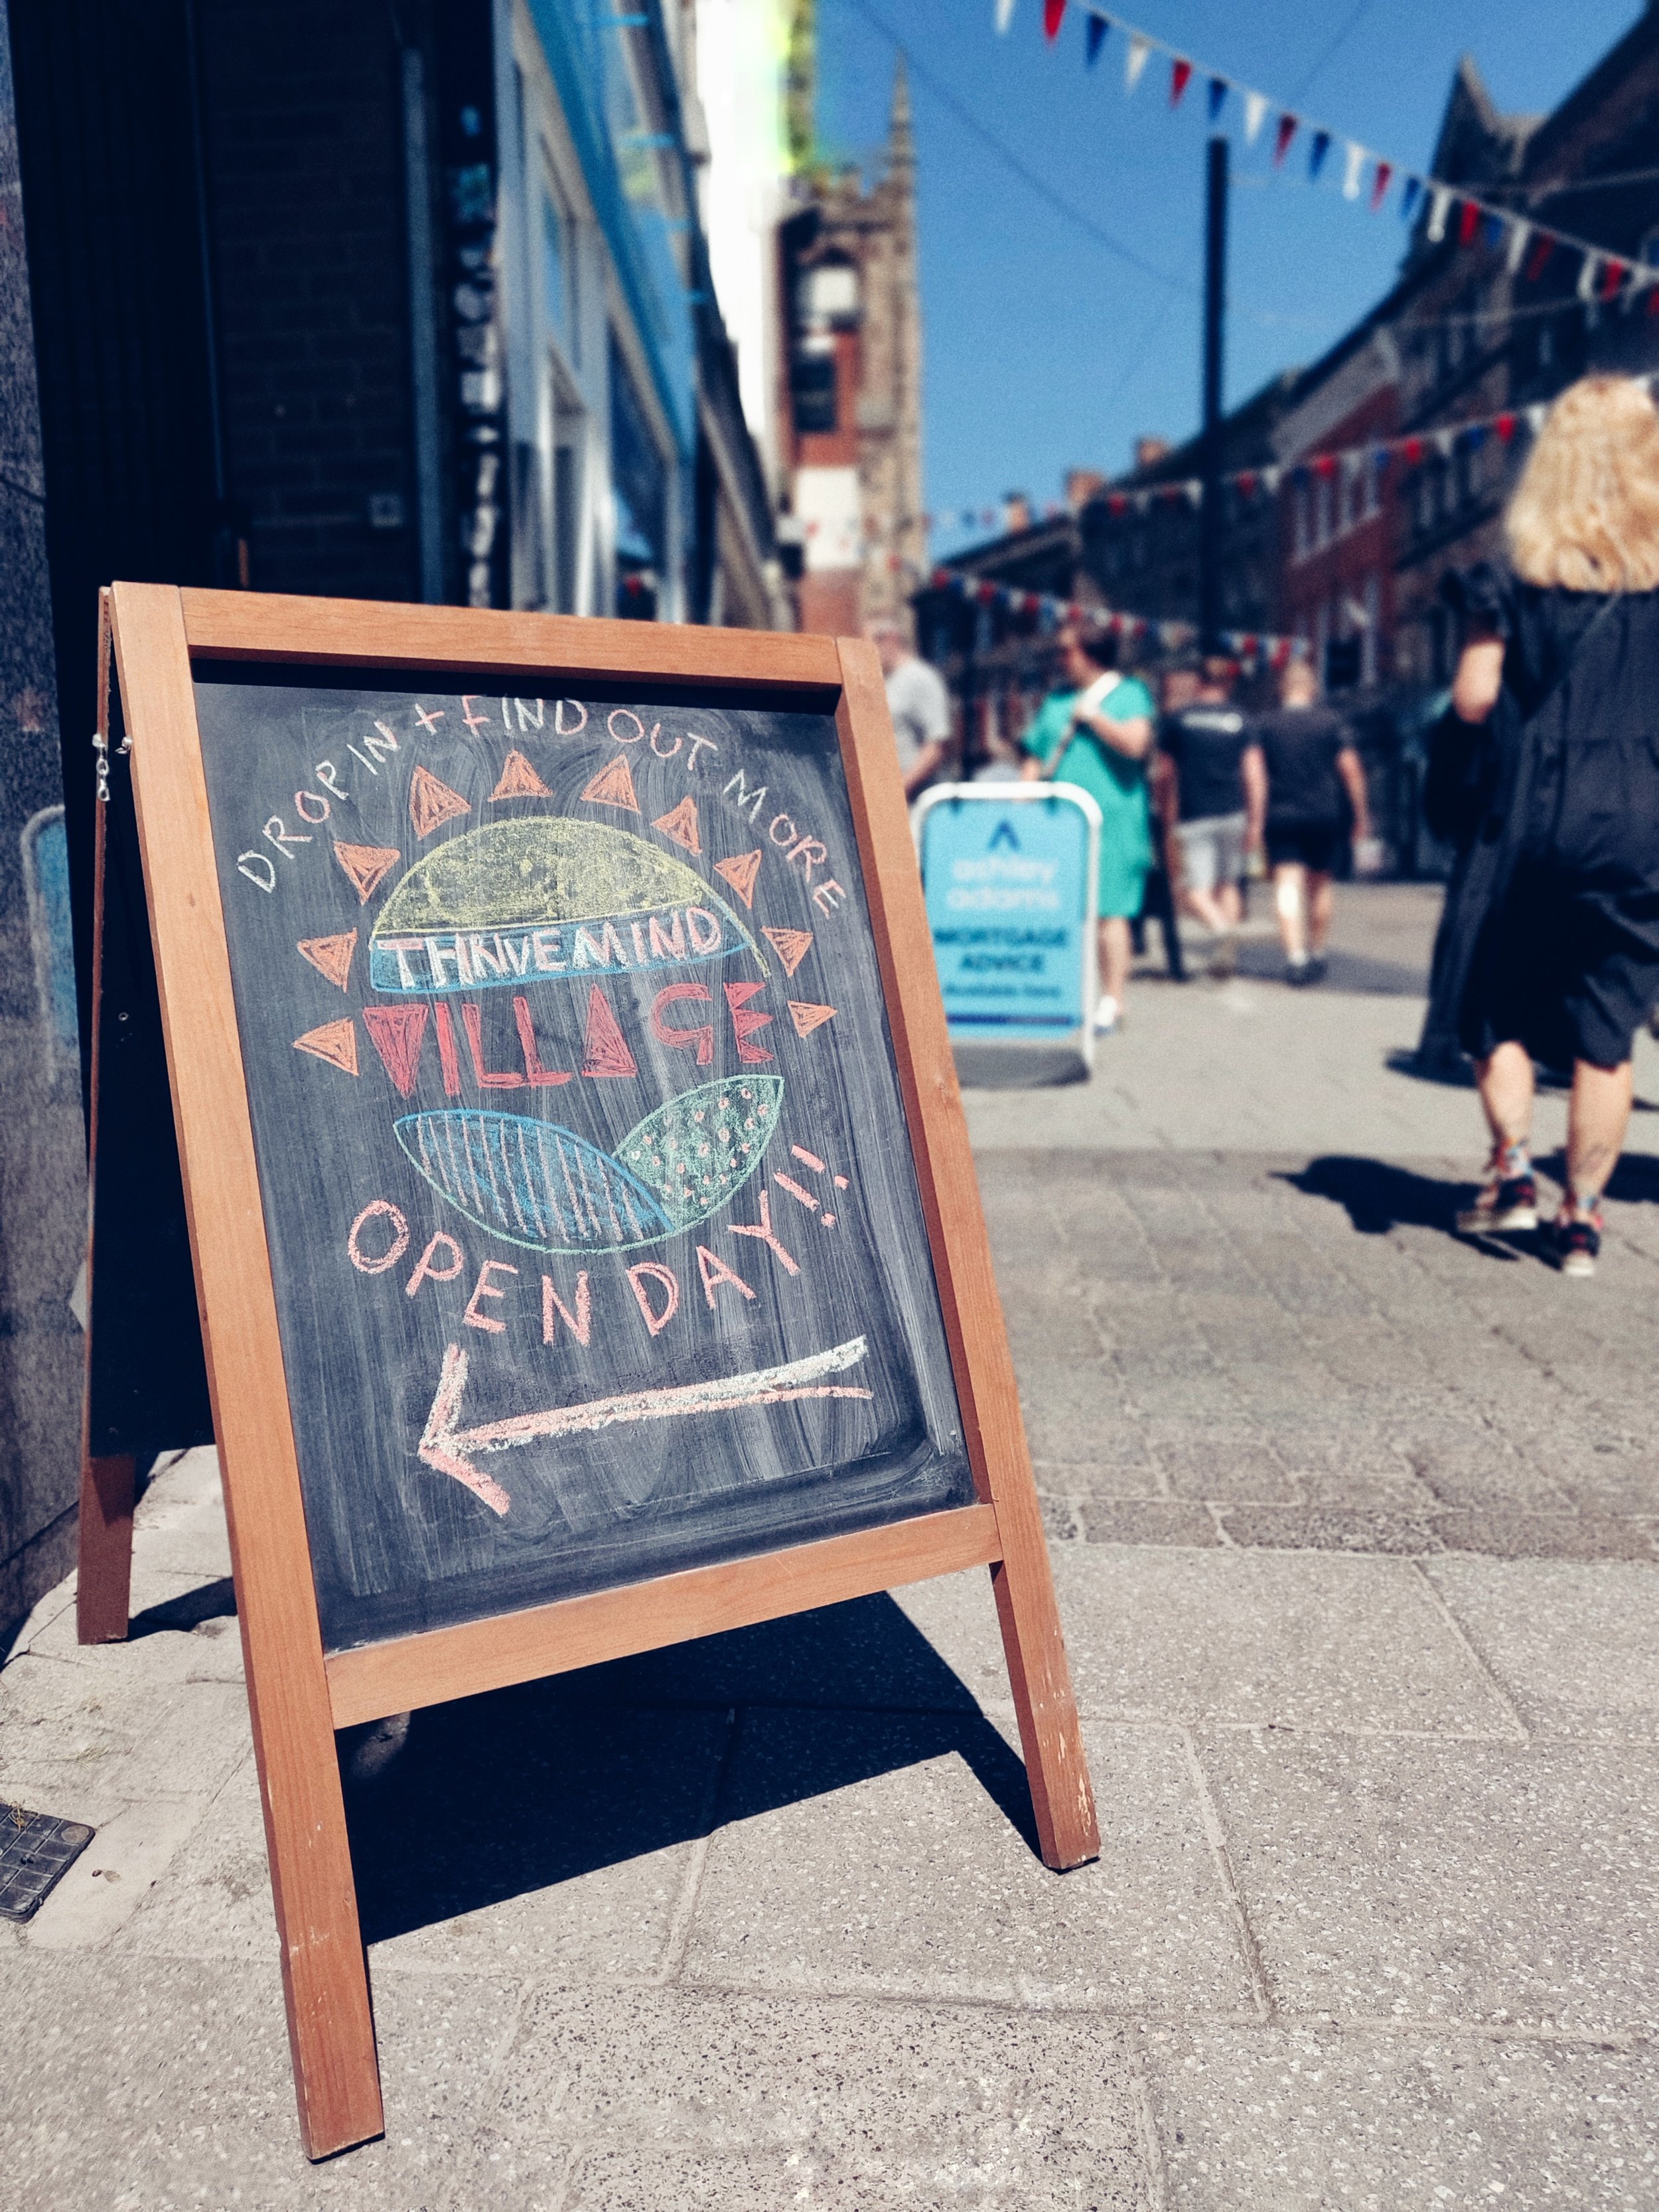 DROP IN + FIND OUT MORE
THRIVEMIND
VILLAGE
OPEN DAY!!
ashley
adams
MORTGAGE
ADVICE
Available Here